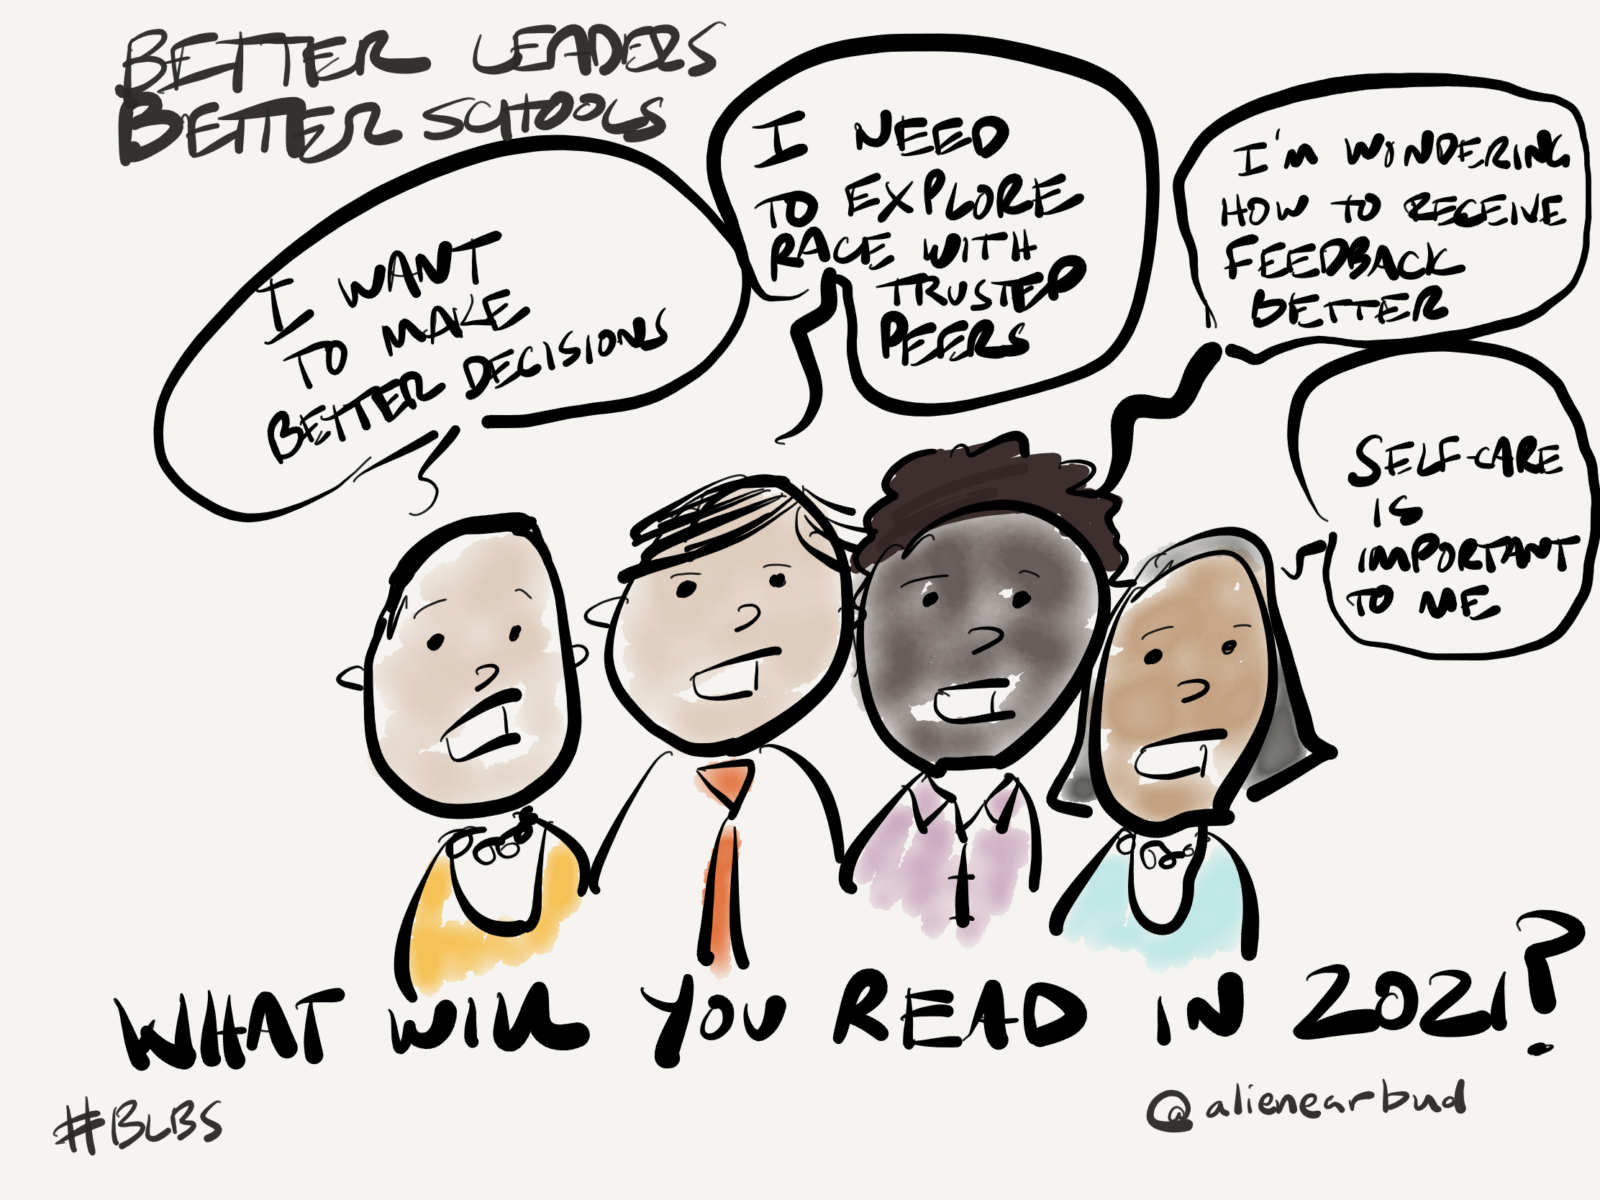 BETTER LEADERS
BETTER SCHOOLS
I WANT
TO MAKE
BETTER DECISIONS
I NEED
TO EXPLORE
RACE WITH
TRUSTED
PEERS
I'M WONDERING
HOW TO RECEIVE
FEEDBACK
BETTER
SELF-CARE
IS
IMPORTANT
TO ME
WHAT WILL YOU READ IN 2021?
#BLBS
@alienearbud